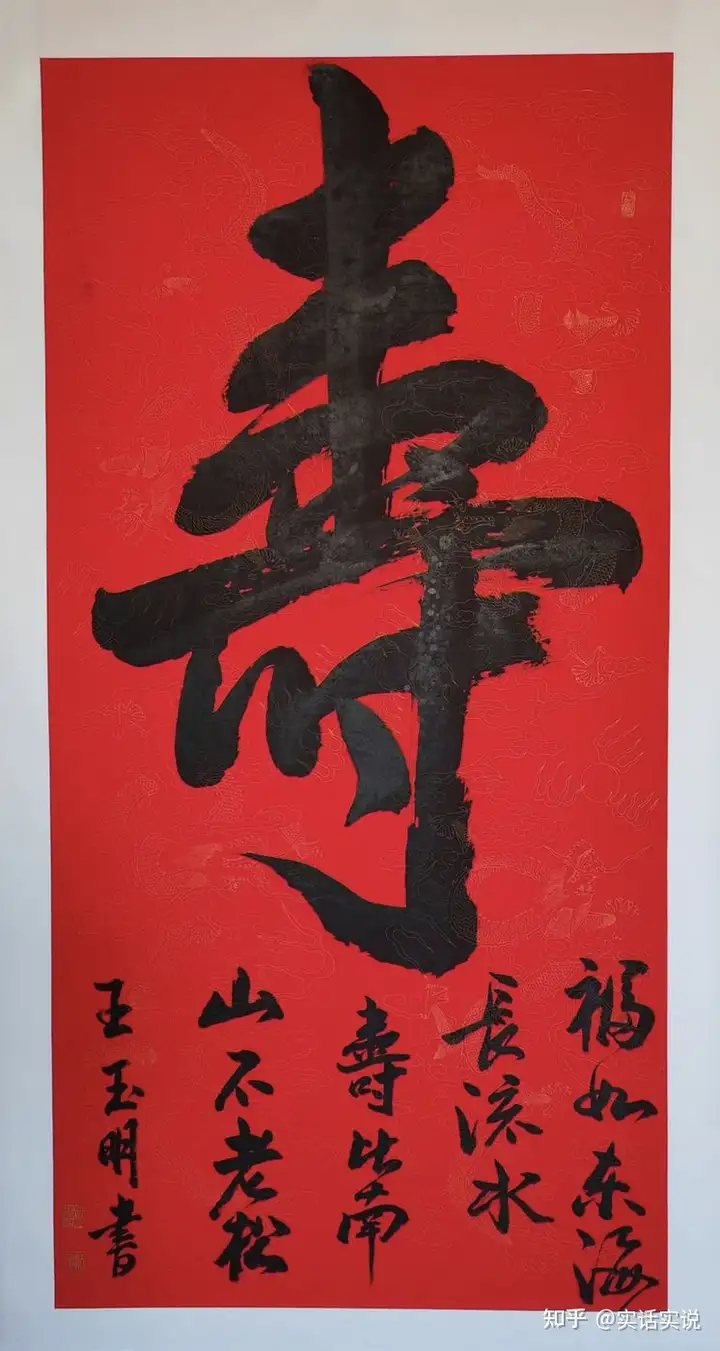 壽
福如东海
長流水
壽比南
山不老松
王玉明書
知乎 @实话实说